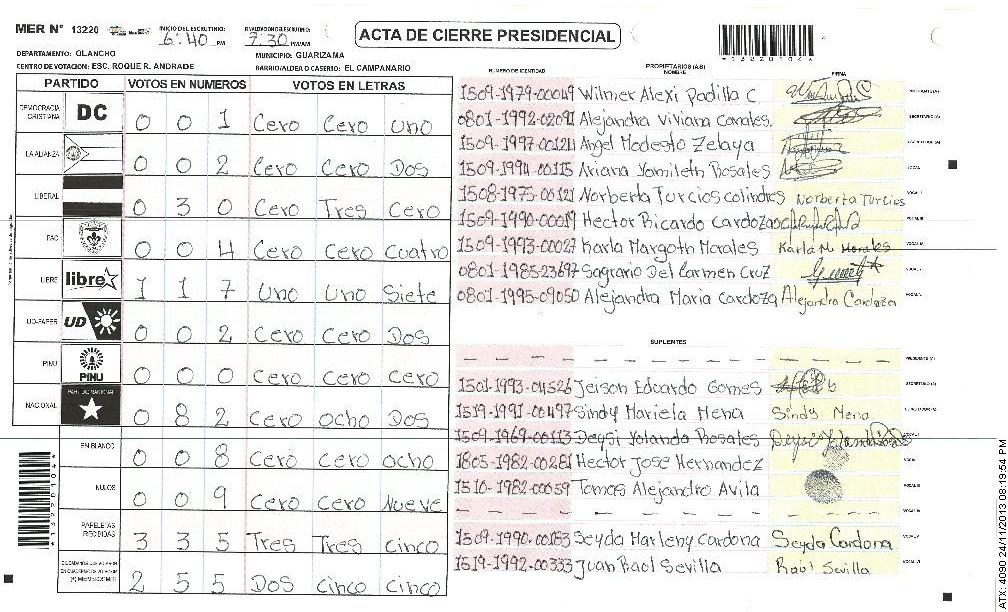 MER N° 13220
INICIO DEL ESCRUTINIO: 6:40 PM
FINALIZACION DEL ESCRUTINIO: 7:30 PM/AM
ACTA DE CIERRE PRESIDENCIAL
DEPARTAMENTO: OLANCHO
MUNICIPIO: GUARIZAMA
CENTRO DE VOTACION: ESC. ROQUE R. ANDRADE
BARRIO/ALDEA O CASERIO: EL CAMPANARIO
PARTIDO VOTOS EN NUMEROS VOTOS EN LETRAS
DEMOCRACIA CRISTIANA DC 0 0 1 Cero Cero Uno
LA ALIANZA 0 0 2 Cero Cero Dos
LIBERAL 0 3 0 Cero Tres Cero
PAC 0 0 4 Cero Cero Cuatro
LIBRE libre 1 1 7 Uno Uno Siete
UD-FAPER UD 0 0 2 Cero Cero Dos
PINU PINU 0 0 0 Cero Cero Cero
NACIONAL PARTIDO NACIONAL 0 8 2 Cero Ocho Dos
EN BLANCO 0 0 8 Cero Cero Ocho
NULOS 0 0 9 Cero Cero Nueve
PAPELETAS RECIBIDAS 3 3 5 Tres Tres Cinco
2 5 5 Dos Cinco Cinco
NUMERO DE IDENTIDAD PROPIETARIOS (AS) NOMBRE FIRMA
1509-1979-00049 Wilmer Alexi Padilla C
0801-1992-02091 Alejandra Viviana Canales
1509-1997-00124 Angel Modesto Zelaya
1509-1994-00115 Ariana Yamileth Rosales
1508-1975-00121 Norberta Turcios colindres Norberta Turcios
1509-1990-00019 Hector Ricardo Cardoza
1509-1993-00027 Karla Margoth Morales Karla M Morales
0801-1985-23697 Sagrario Del Carmen Cruz
0801-1995-09050 Alejandra Maria Cardoza Alejandra Cardoza
SUPLENTES
1501-1993-04526 Jeison Eduardo Gomes
1519-1991-00497 Sindy Mariela Mena Sindy Mena
1509-1969-00113 Deysi Yolando Rosales
1805-1982-00281 Hector Jose Hernandez
1510-1982-00059 Tomas Alejandro Avila
1509-1990-00153 Seyda Marleny Cardona Seyda Cardona
1519-1992-00333 Juan Raol Sevilla Raol Sevilla
ATX: 4090 24/11/2013 08:19:54 PM